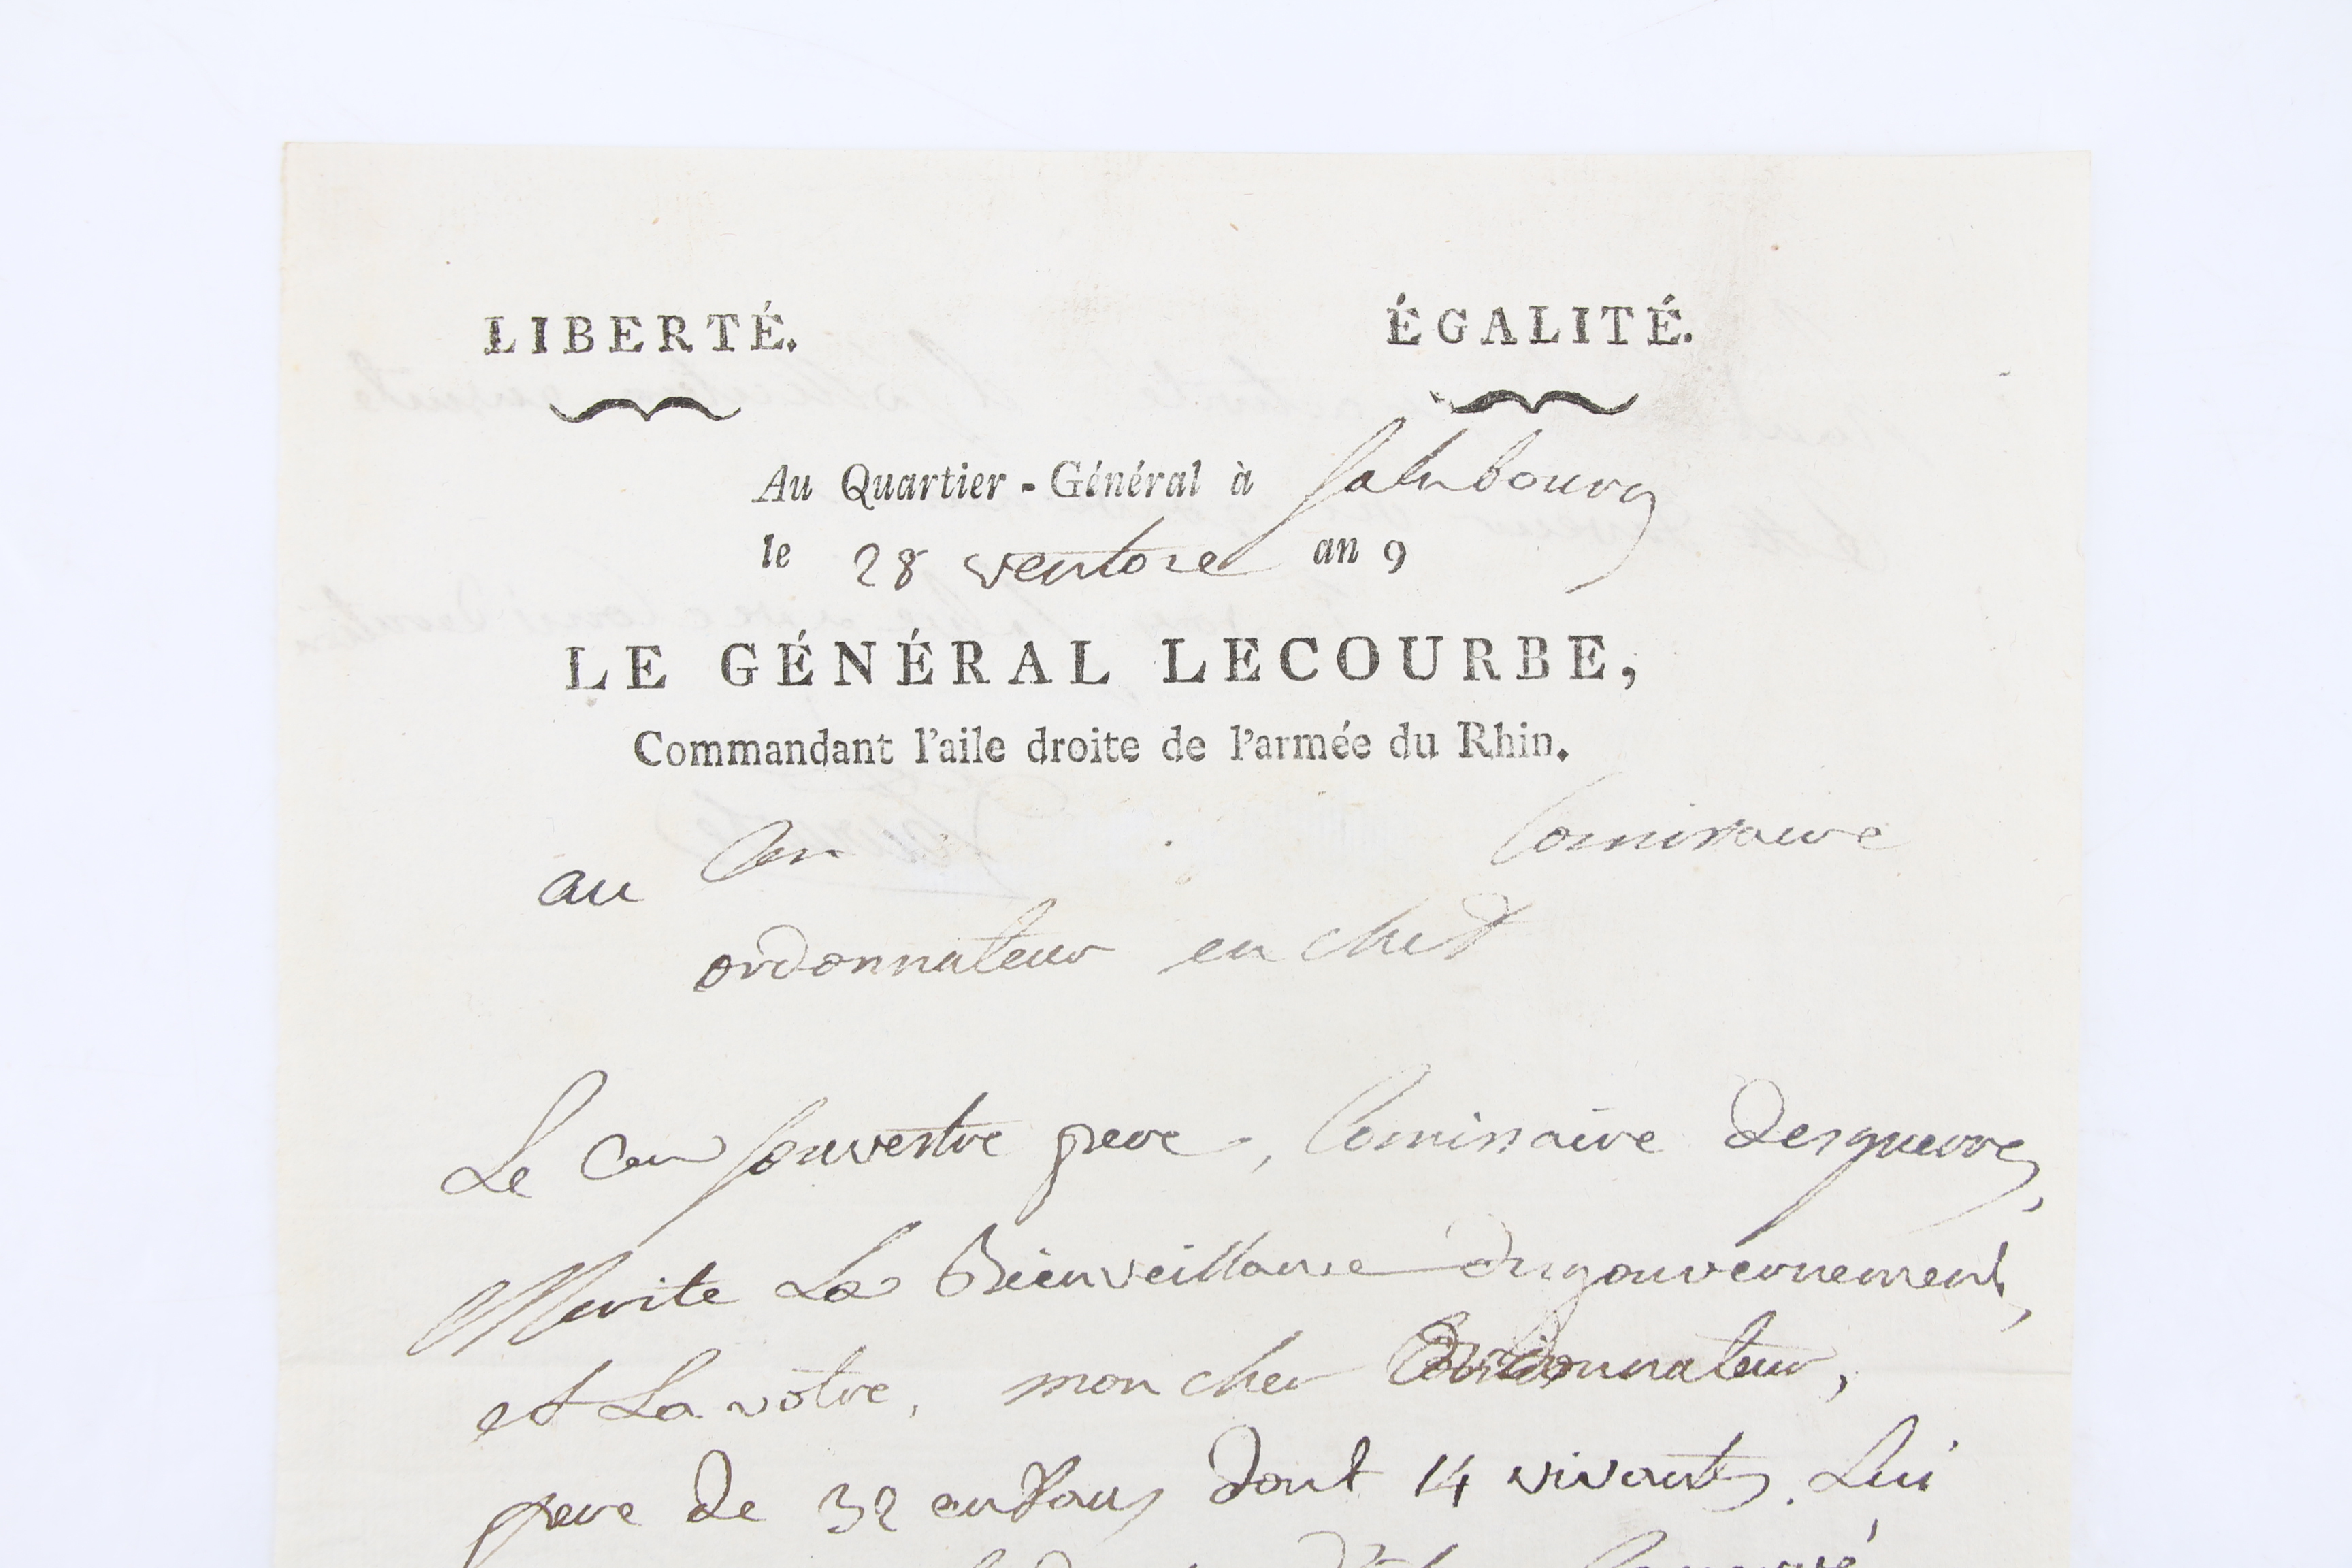 LIBERTÉ. ÉGALITÉ.
Au Quartier-Général à Salzbourg
le 28 ventose an 9
LE GÉNÉRAL LECOURBE,
Commandant l'aile droite de l'armée du Rhin.
au Cen Comissaire
ordonnateur en chef
Le Cen Souvestre pere, Comissaire des guerres,
Merite La Bienveillance du gouvernement,
et La vôtre, mon cher ordonnateur,
pere de 32 enfans dont 14 vivants. Lui